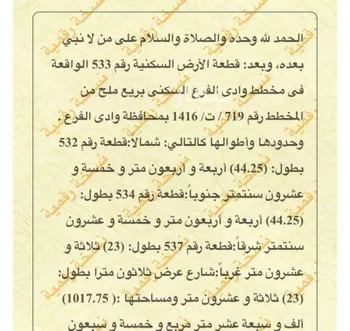 الحمد لله وحده والصلاة والسلام على من لا نبي
بعده، وبعد: قطعة الأرض السكنية رقم 533 الواقعة
فى مخطط وادى الفرع السكنى بريع ملح من
المخطط رقم 719 / ت/ 1416 بمحافظة وادى الفرع .
وحدودها وأطوالها كالتالي: شمالا:قطعة رقم 532
بطول: (44.25) أربعة و أربعون متر و خمسة و
عشرون سنتمتر جنوباً:قطعة رقم 534 بطول:
(44.25) أربعة و أربعون متر و خمسة و عشرون
سنتمتر شرقاً:قطعة رقم 537 بطول: (23) ثلاثة و
عشرون متر غرباً:شارع عرض ثلاثون مترا بطول:
(23) ثلاثة و عشرون متر ومساحتها :( 1017.75)
ألف و سبعة عشر متر مربع و خمسة و سبعون
نسخة رقمية